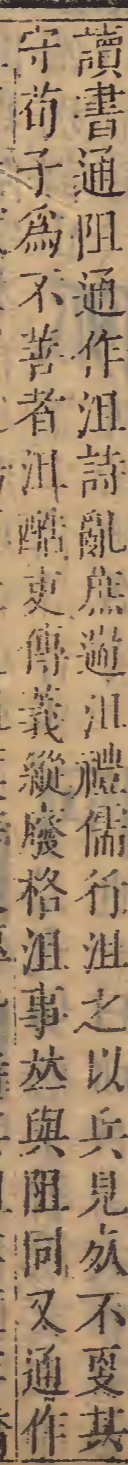 讀書通阻通作沮詩亂庶遄沮禮儒行沮之以兵見死不㪅其
守荀子爲不善者沮酷吏傳義縱廢格沮事𠀤與阻同又通作